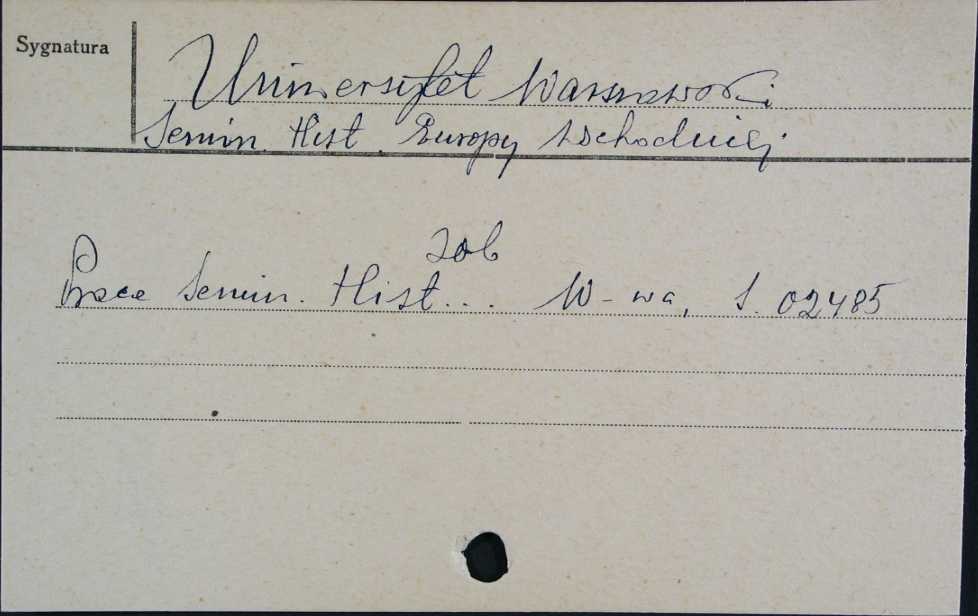 Sygnatura
Uniwersytet Warszawski
Semin. Hist. Europy Wschodniej
zob
Prace Semin. Hist... W-wa, S. 02485